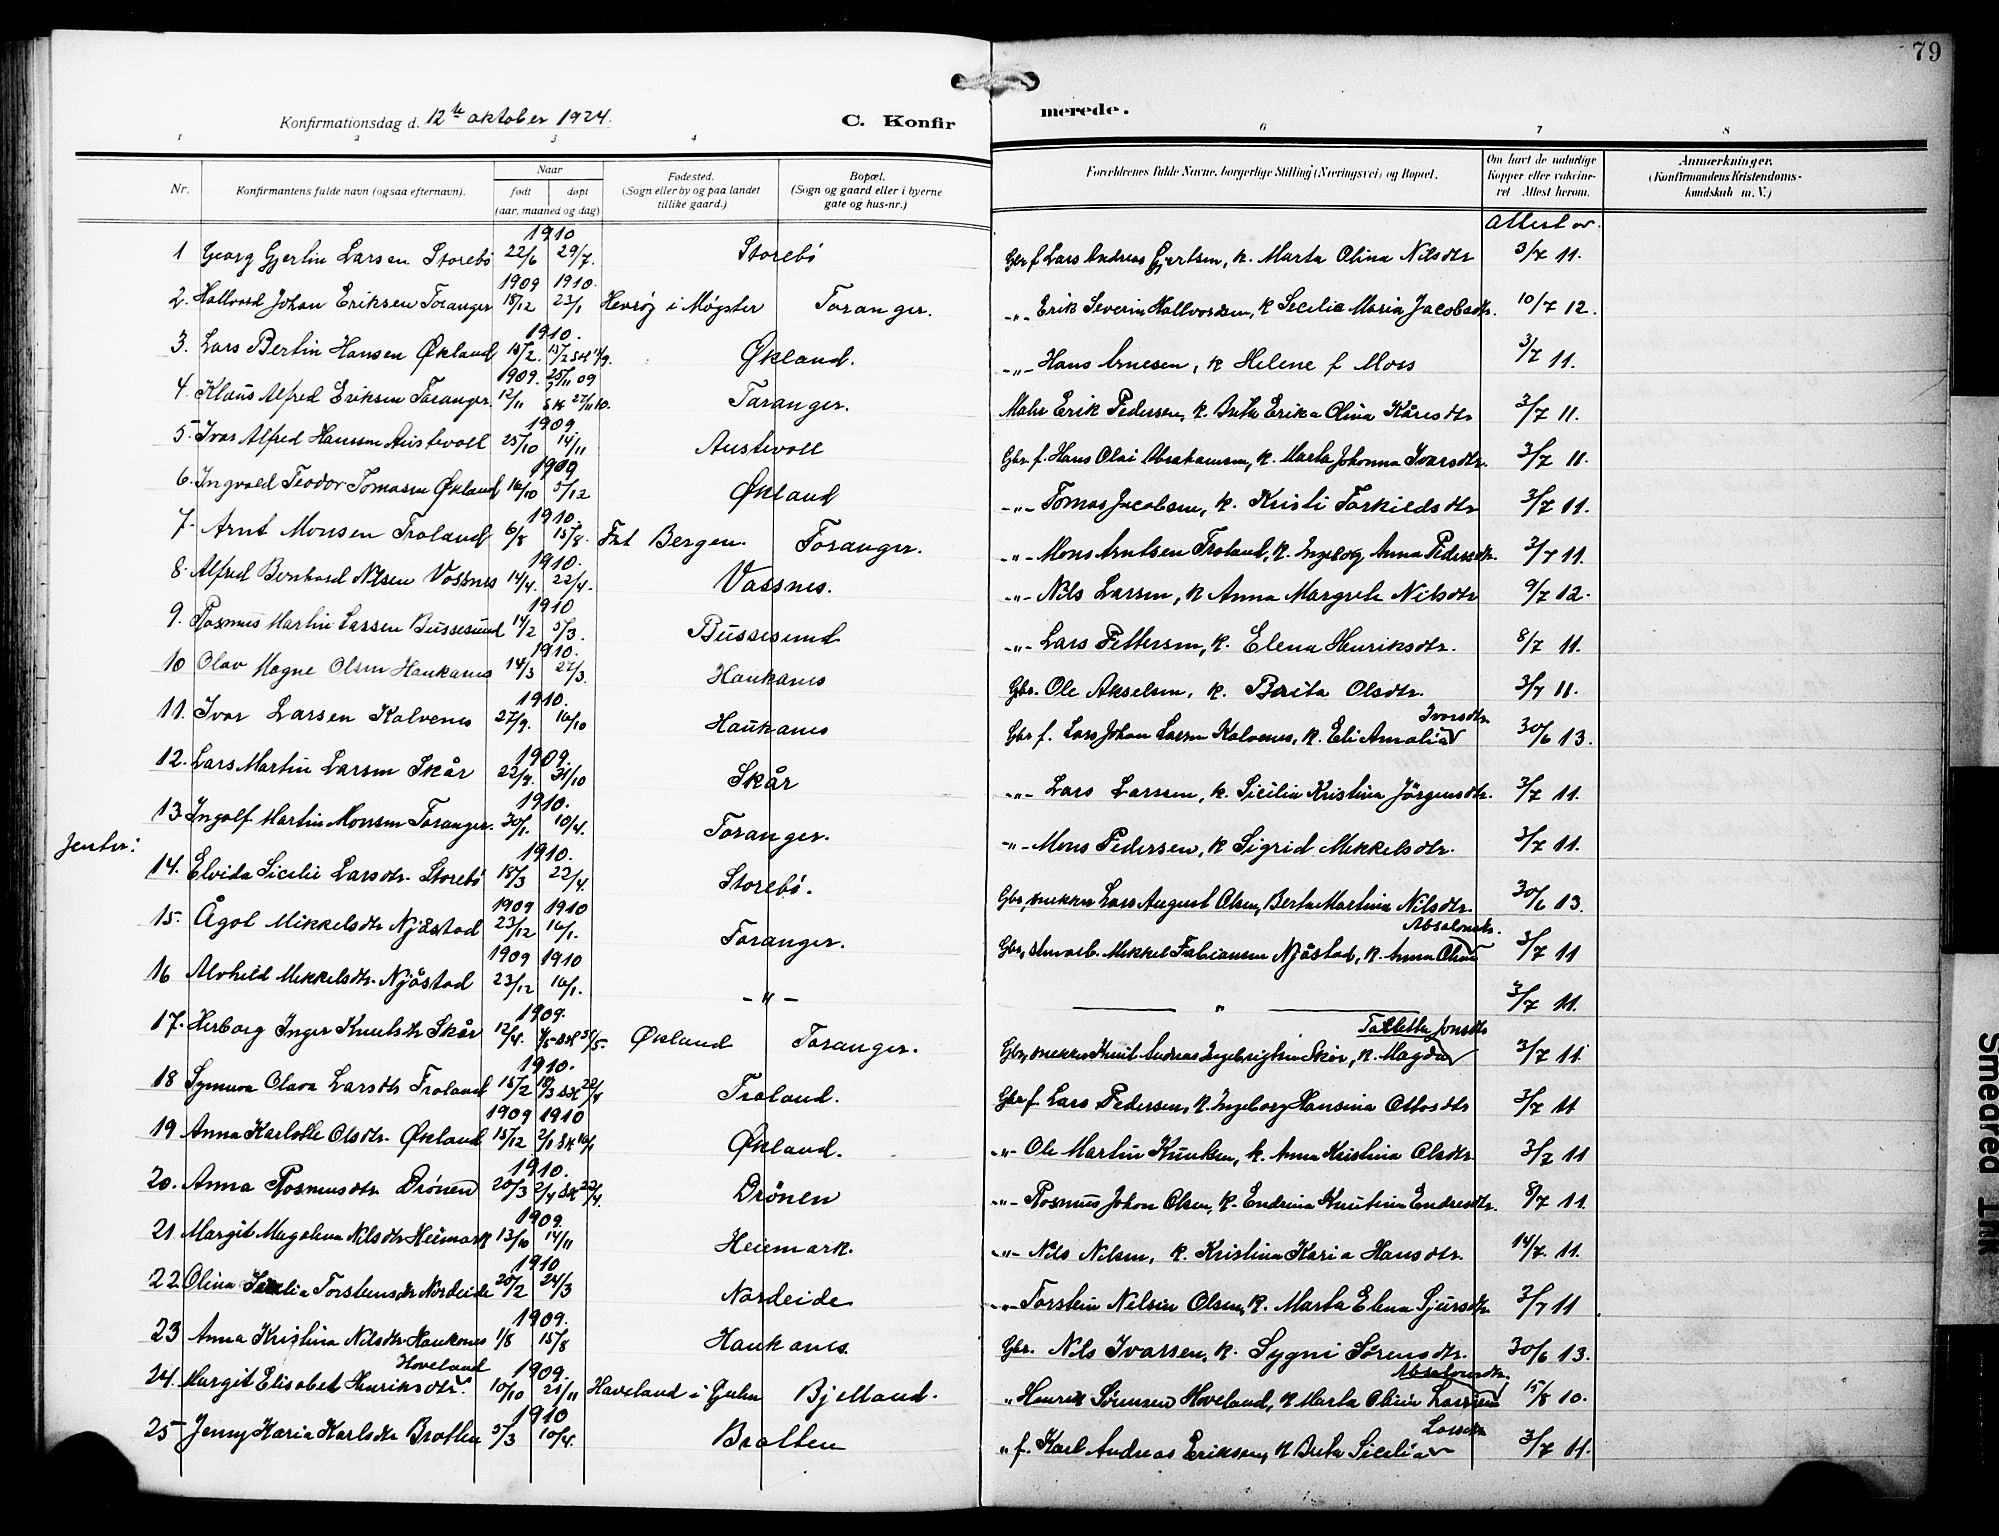 79
Konfirmationsdag d. 12te oktober 1924. C. Konfir merede.
1 2 3 4 6 7 8
Nr. Konfirmantens fulde navn (ogsaa efternavn). Naar født døpt (aar, maaned og dag) Fødested. (Sogn eller by og paa landet tillike gaard.) Bopæl. (Sogn og gaard eller i byerne gate og hus-nr.) Forældrenes fulde Navne, borgerlige Stilling (Næringsvei) og Bopæl. Om havt de naturlige Kopper eller vakcineret Attest herom. Anmærkninger. (Konfirmandens Kristendomskundskab m. V.)
Attest av
1 Georg Gjertin Larsen Storebø 1910 22/6 29/7. Storebø Gbr f Lars Andreas Gjertsen, k. Marta Olina Nilsdtr 3/7 11.
2. Hallvard Johan Eriksen Toranger 1909 18/12 1910. 23/1 Hevrøy i Møgster Toranger. -"- Erik Severin Hallvordsen, k Secilia Maria Jacobsdtr. 10/7 12.
3. Lars Bertin Hansen Økland 1910. 15/2. 15/2 Økland. -"- Hans Arnesen, k Helene f Moss 3/7 11.
4. Klaus Alfred Eriksen Taranger. 1909. 12/11 25/11 09 Sk 27/11 10. Taranger. Mahr Erik Pedersen, k. Brita Erika Olina Kåresdtr 3/7 11.
5. Ivar Alfred Hansen Austevoll 1909. 25/10 14/11 Austevoll Gbr. f. Hans Olai Abrahamsen, k. Marta Johanna Ivarsdtr. 3/7 11.
6. Ingvald Teodor Tomasen Økland 1909 16/10 5/12 Økland -"- Tomas Jacobsen, k. Kristi Torkildsdtr 3/7 11.
7. Arnt Monsen Troland 1910. 6/8 15/8. Fet Bergen. Toranger. -"- Mons Arntsen Troland, k. Ingeborg Anna Pedersdtr. 3/7 11.
8. Alfred Bernhard Nilsen Vossnes 1910. 14/4. 22/4. Vassnes. -"- Nils Larsen, k Anna Margrete Nilsdtr 9/7 12.
9. Rasmus Martin Larsen Bussesund 1910 14/2 5/3. Bussesund -"- Lars Pettersen, k. Elena Henriksdtr. 8/7 11.
10 Olav Magne Olsen Haukanes 1910. 14/3 27/3. Haukanes Gbr. Ole Akselsen, k. Brita Olsdtr. 3/7 11.
11. Ivar Larsen Kalvenes 1910. 27/9. 16/10 Haukanes Gbr f. Lars Johan Larsen Kalvenes, k. Eli Amalia Ivarsdtr 30/6 13.
12. Lars Martin Larsen Skår 1909. 22/9. 31/10 Skår -"- Lars Larssen, k. Sicilia Kristina Jörgensdtr. 3/7 11.
13. Ingolf Martin Monsen Toranger. 1910. 30/1. 10/4. Toranger. -"- Mons Pedersen, k Sigrid Mikkelsdtr. 3/7 11.
Jenter:
14. Elvida Sicilie Larsdtr. Storebø 1910. 18/3 22/4. Storebø. Gbr, snekker Lars August Olsen, Berta Martina Nilsdtr. 30/6 13.
15. Ågot Mikkelsdtr Njåstad 1909 23/12 1910 16/1. Toranger. Gbr, Mekkel Fabiansen Njåstad, k. Anna Olina Absalonsdtr. 3/7 11
16 Alvhild Mikkelsdtr. Njåstad 1909 23/12 1910 16/1. -"- " 3/7 11.
17. Herborg Inger Knutsdtr Skår 1909. 12/4. Økland Toranger. Gbr, snekker Knut Andreas Ingebrigtsen Skår, k. Magda Jonsdtr 3/7 11
18 Synnøva Olava Larsdtr Troland 1910. 15/2 Sk 22/4 Troland. Gbr f Lars Pedersen, k. Ingeborg Hansina Ottosdtr 3/7 11
19 Anna Karlotte Olsdtr. Økland 1909 15/12 1910 2/1 Sk 16/1 Økland. -"- Ole Martin Knutsen, k. Anna Kristina Olsdtr 3/7 11
20. Anna Rasmusdtr. Drönen 1910. 20/3 2/4 Sk 22/4. Drönen -"- Rasmus Johan Olsen, k. Endrina Knutina Endresdtr. 8/7 11.
21 Margit Magdlena Nilsdtr Heimark 1909. 13/10 14/11 Heiemark. -"- Nils Nilsen, k. Kristina Karia Hansdtr. 14/7 11.
22. Olina Sicilia Torsteinsdtr Nordeide 1910 20/2 24/3 Nordeide -"- Torstein Nilsen Olsen, k. Marta Elena Sjursdtr 3/7 11
23 Anna Kristina Nilsdtr Haukanes 1909. 1/8 15/8 Haukanes Gbr. Nils Ivarsen, k. Sygni Sörensdtr. 30/6 13.
24. Margit Elisabet Henriksdtr. Hoveland 1909. 10/10 21/11 Haveland i Bjelland. " Henrik Sørensen Hoveland, k Marta Olina Larsine Absalonsdtr. 15/8 10.
25 Jenny Karia Karlsdtr Bratten 1910 5/3 10/4. Bratten " f. Karl Andreas Eriksen, k Brita Sicilia Larsdtr 3/7 11.
Smeared Ink